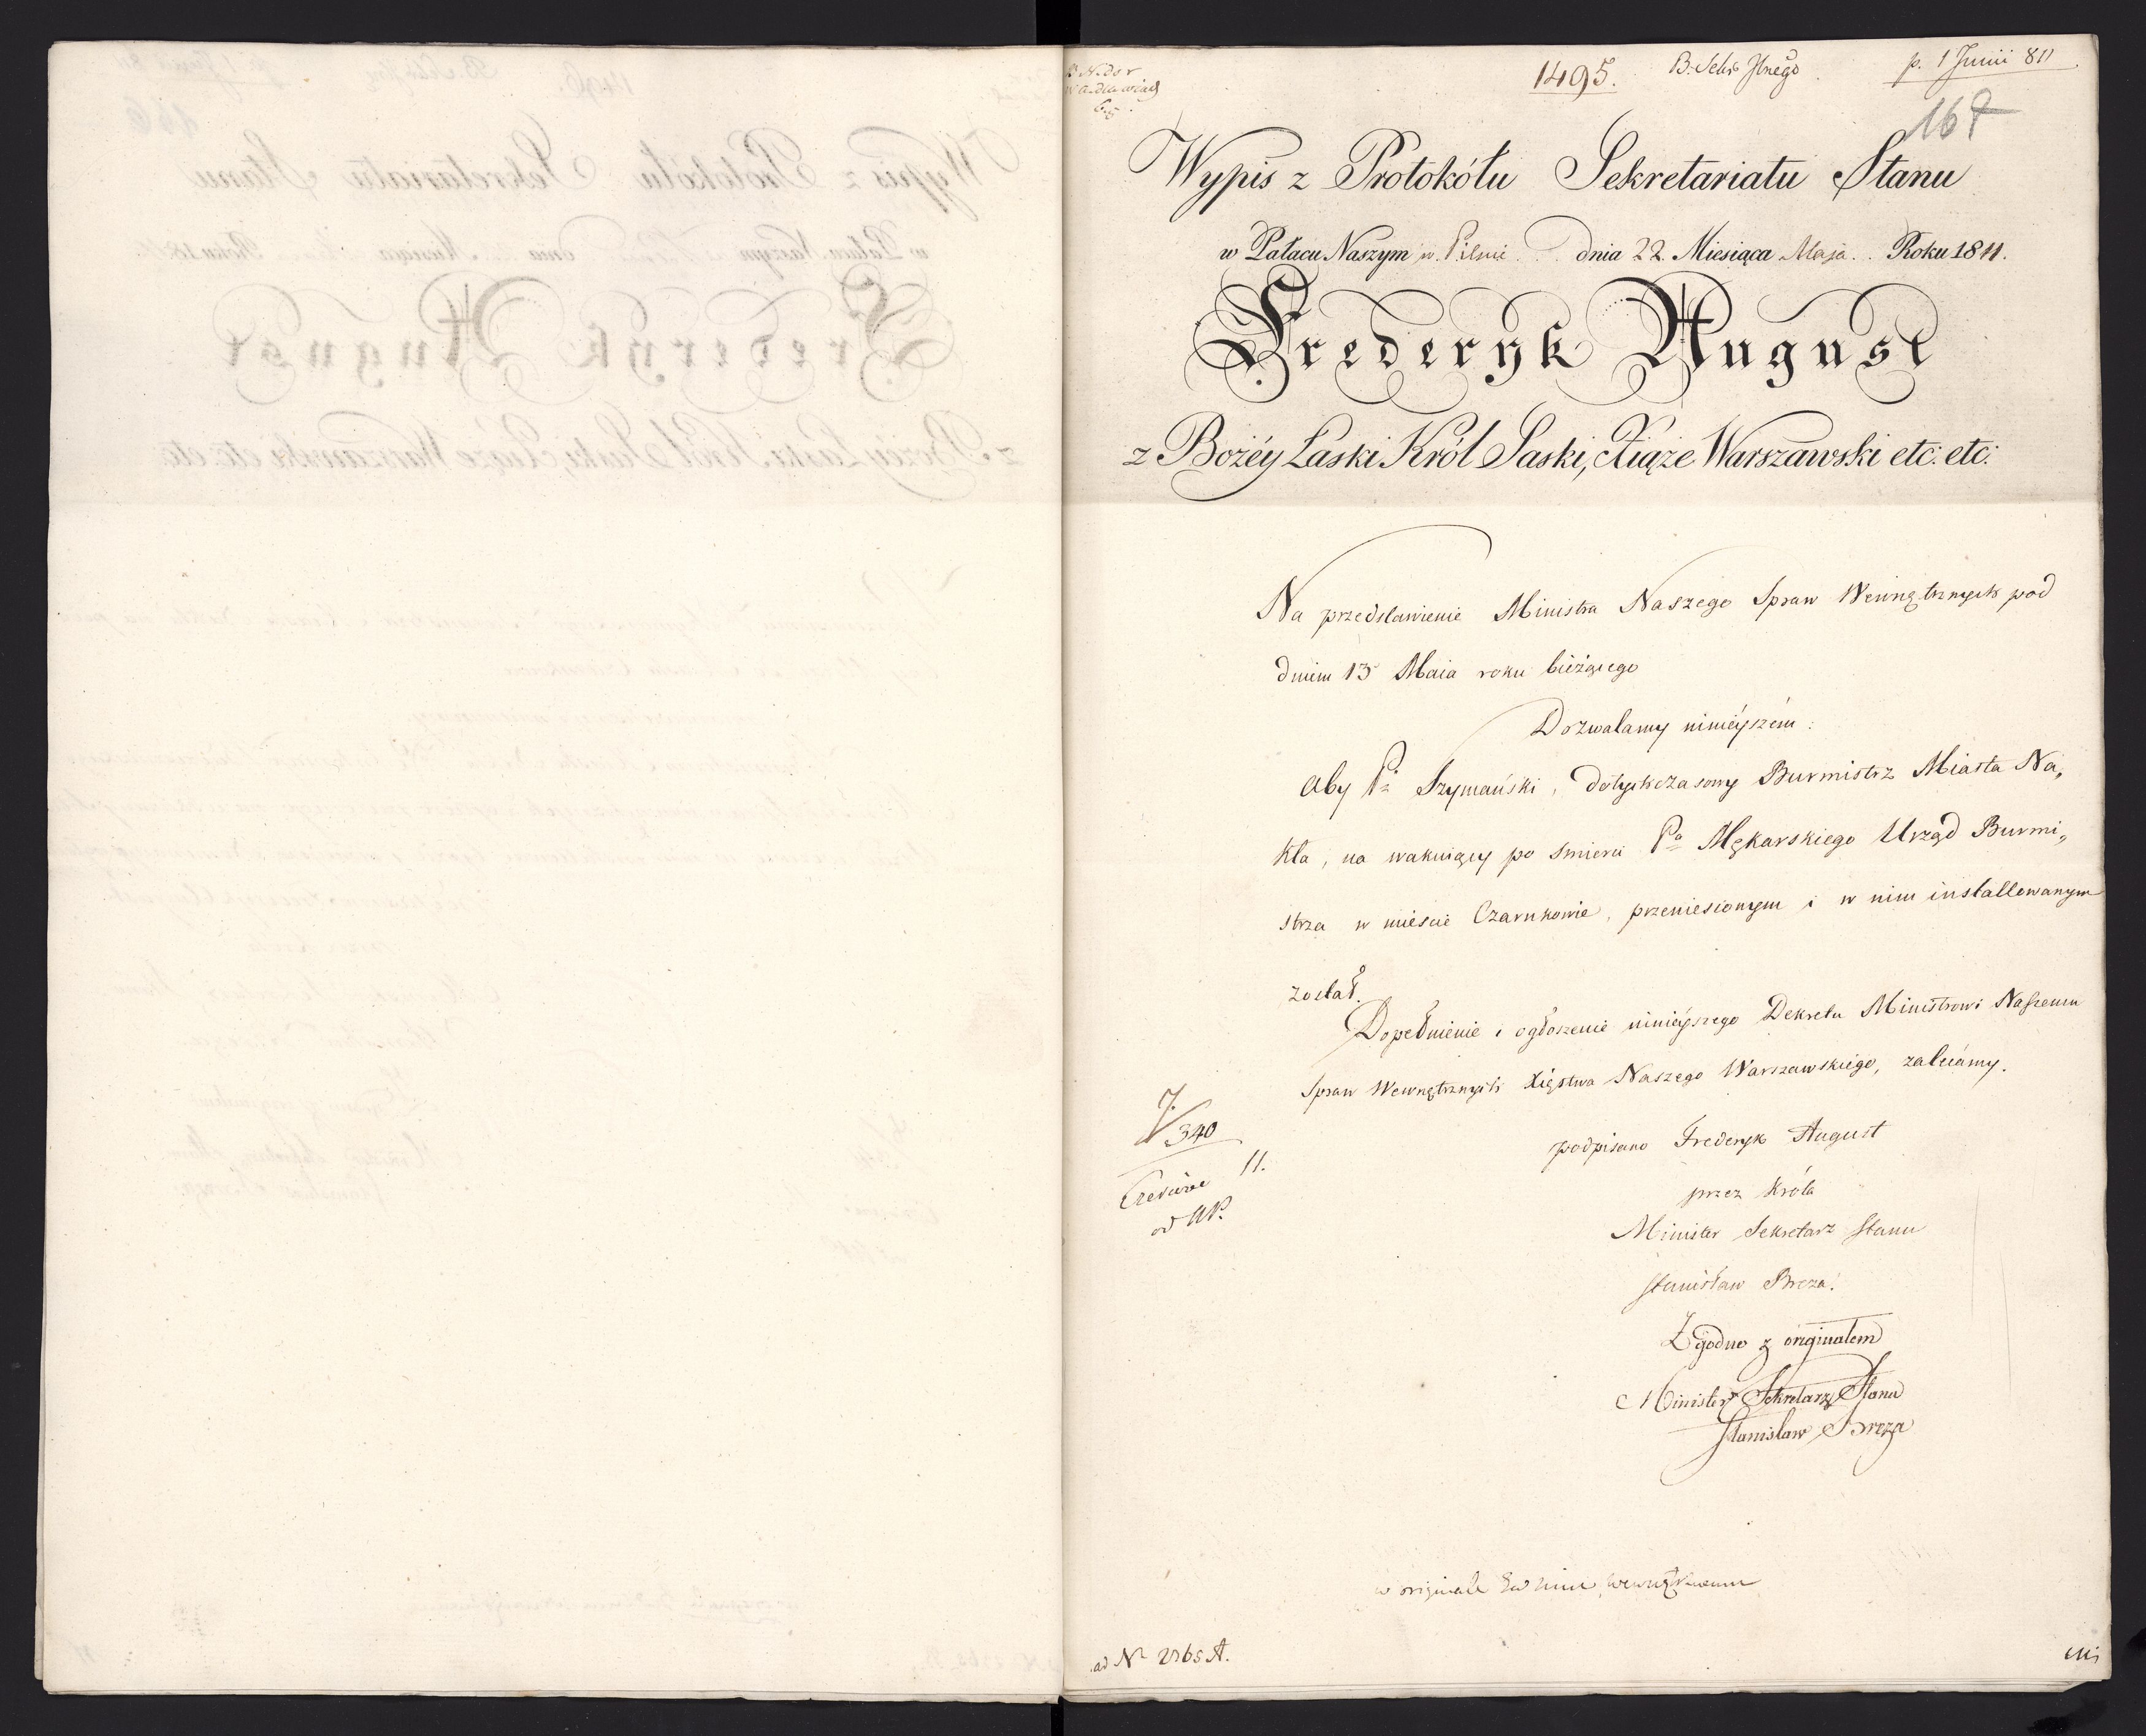 1495.
p. 1 Junii 811
167
Wypis z Protokółu Sekretariatu Stanu
w Pałacu Naszym w Pilnic dnia 22. Miesiąca Maja. Roku 1811.
Frederyk August
z Bożéy Łaski Król Saski, Xiąże Warszawski etc: etc:
Na przedstawienie Ministra Naszego Spraw Wewnętrznych pod
dniem 13 Maia roku bieżącego
Dozwalamy ninieyszém:
aby Pn Szymański, dotychczasowy Burmistrz Miasta Na„
kła, na wakuiący po smierci Pa Mękarskiego Urząd Burmi„
strza w mieście Czarnkowie, przeniesionym i w nim installowanym
został.
Dopełnienie i ogłoszenie ninieyszego Dekretu Ministrowi Naszemu
Spraw Wewnętrznych Xięstwa Naszego Warszawskiego, zalecámy.
340
11.
podpisano Frederyk August
przez Króla
Minister Sekretarz Stanu
Stanisław Breza.
Zgodno z originałem
Minister Sekretarz Stanu
Stanisław Breza
w originale
ad No 2765 A.